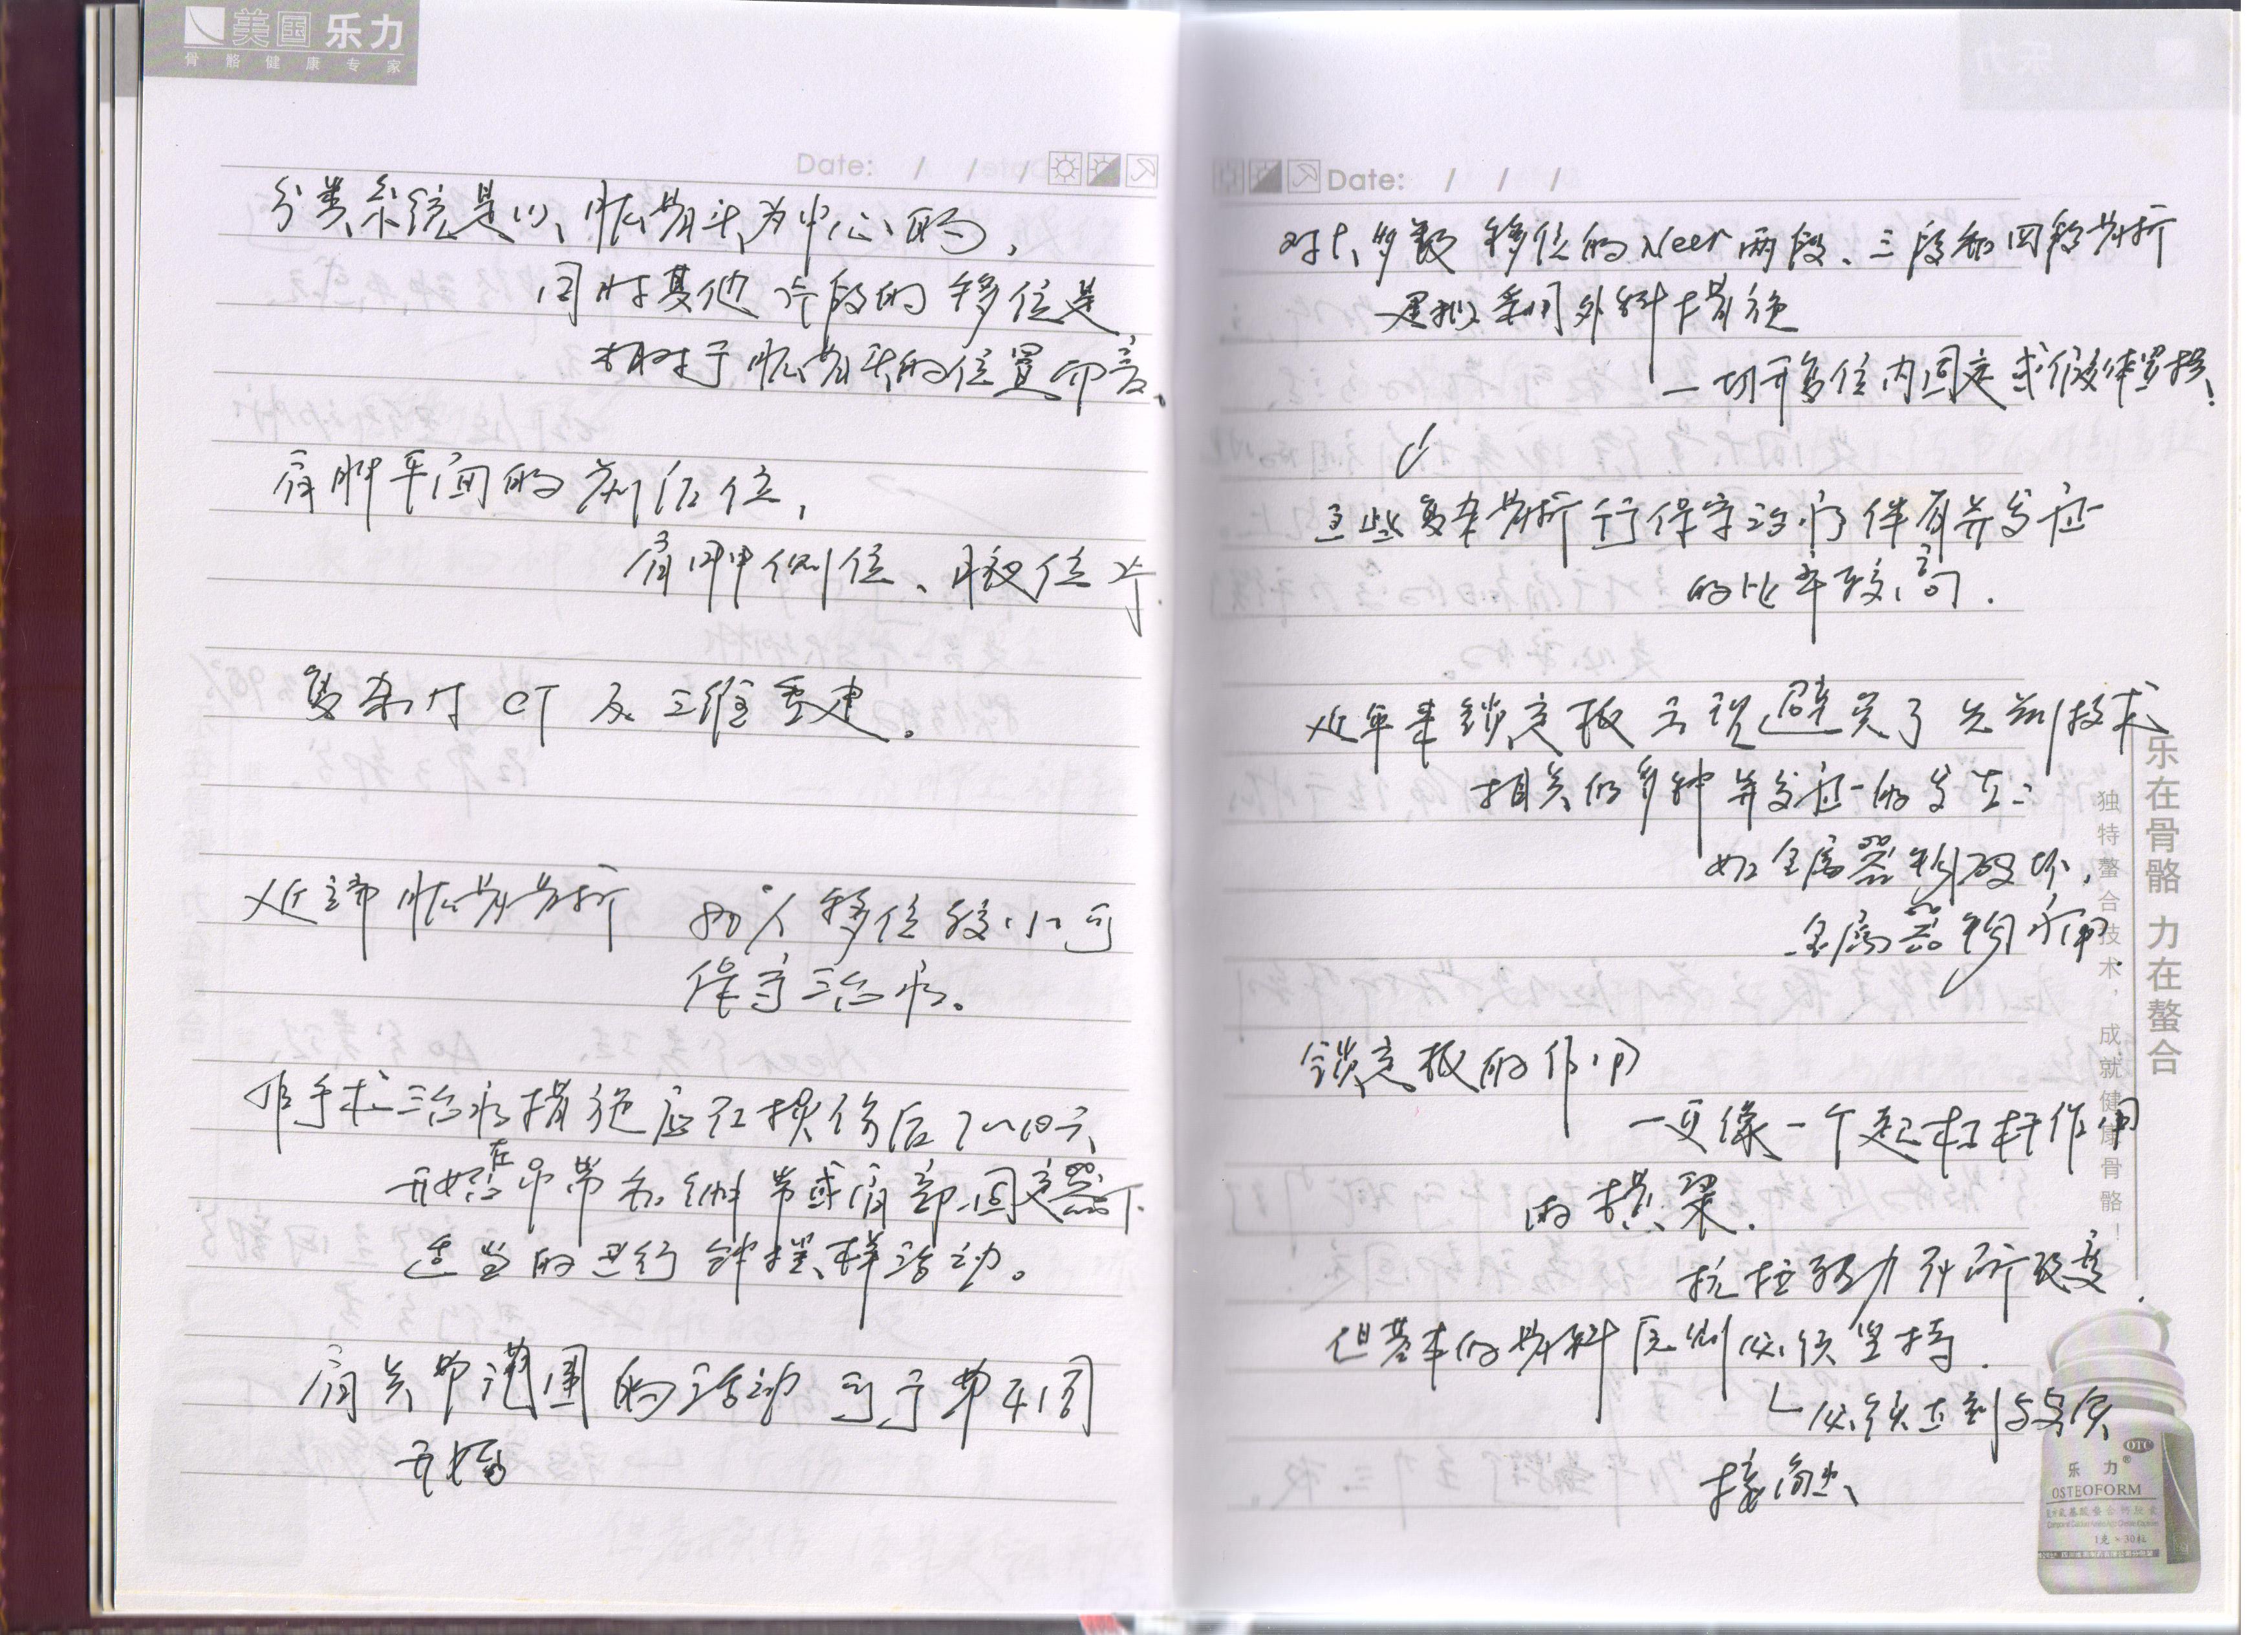 美国 乐力
骨骼健康专家
Date: / / /
分类系统是以肱骨头为中心的,
同时其他片段的移位是
相对于肱骨头的位置而言。
肩胛平面的前后位,
肩胛侧位、腋位片.
复杂时 CT 及三维重建。
近端肱骨骨折 移位较小可
保守治疗。
非手术治疗措施应在损伤后7~10天
开始在吊带和绷带或肩部固定器下
适当的进行钟摆样活动。
肩关节范围的活动可于第4周
开始
Date: / / /
对大多数移位的Neer两段、三段和四段骨折
建议采用外科措施
—切开复位内固定或假体置换!
这些复杂骨折行保守治疗伴有并发症
的比率较高.
近年来锁定板 避免了先前技术
相关的多种并发症的发生:
如金属器物破坏,
金属器物
锁定板的作用
—更像一个起杠杆作用
的横梁.
抗拉 力有所改变.
但基本的骨科原则必须坚持.
必须达到与骨质
接触、
乐在骨骼 力在螯合
独特螯合技术,成就健康骨骼!
OTC
乐力®
OSTEOFORM
1克×30粒